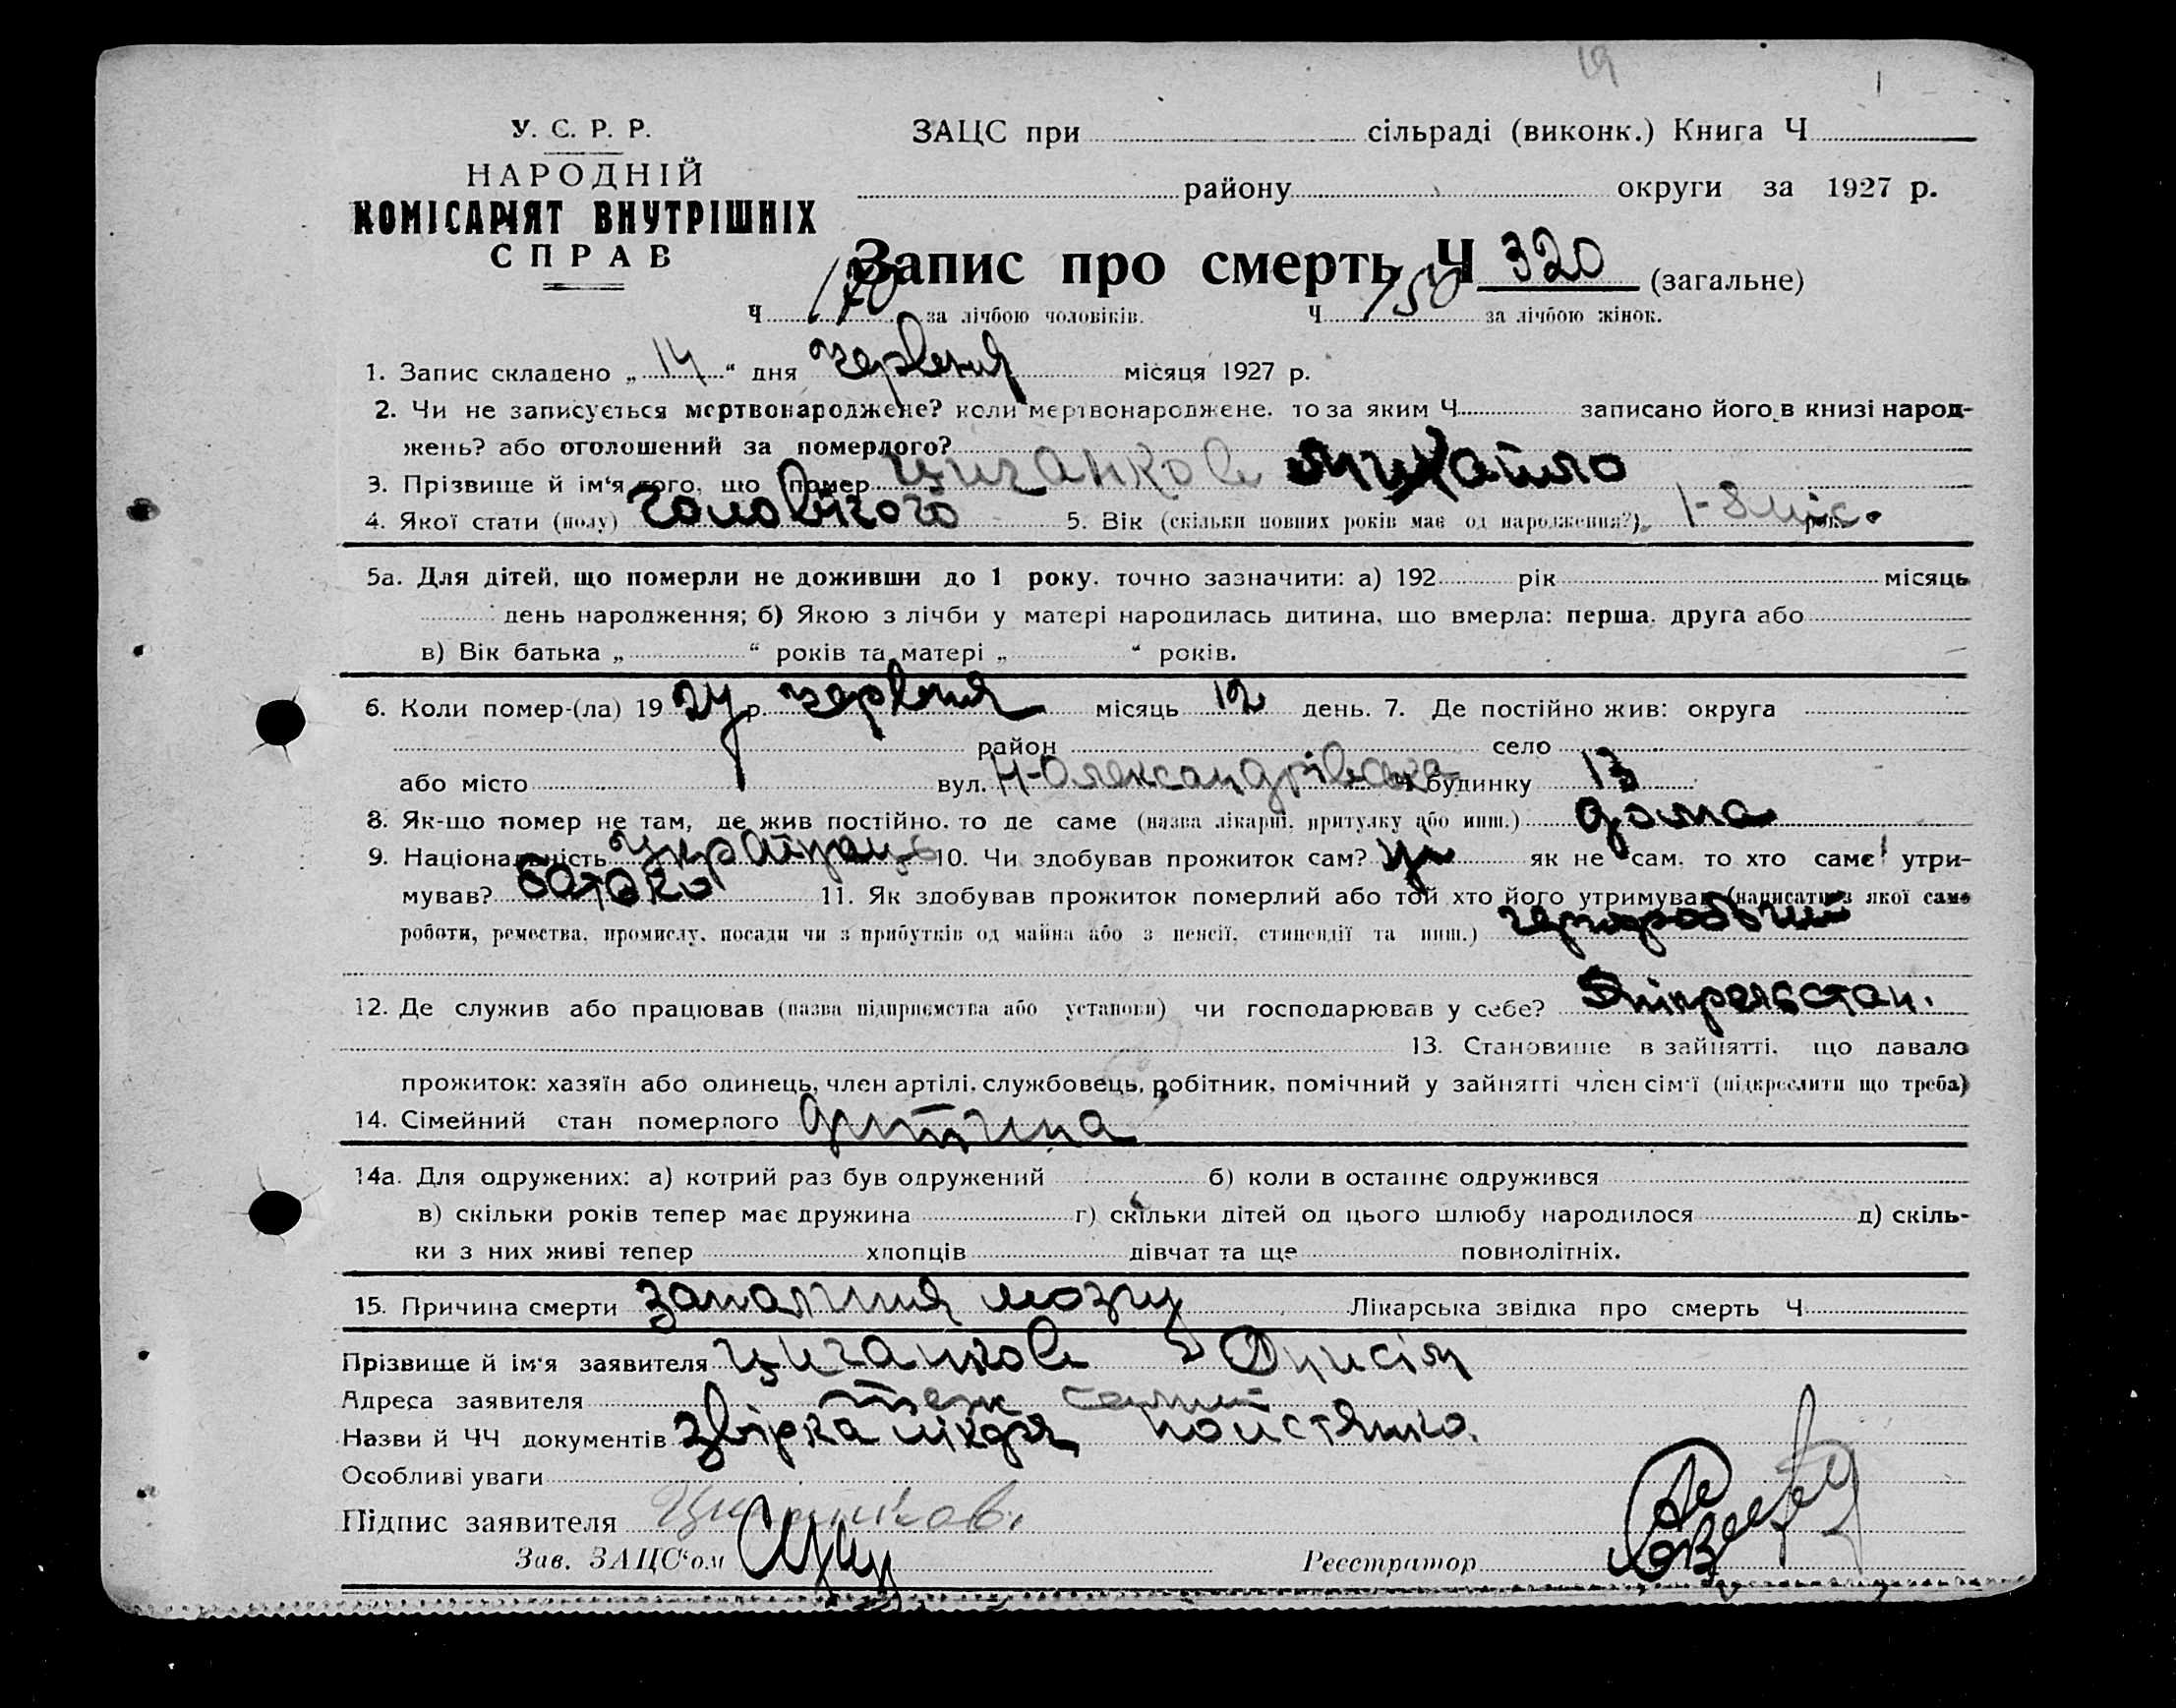 19
У. С. Р. Р.
НАРОДНІЙ
КОМІСАРІЯТ ВНУТРІШНІХ
СПРАВ
ЗАЦС при сільраді (виконк.) Книга Ч
району округи за 1927 р.
Запис про смерть Ч 320 (загальне)
Ч 170 за лічбою чоловіків. Ч 150 за лічбою жінок.
1. Запис складено „14“ дня червня місяця 1927 р.
2. Чи не записується мертвонароджене? коли мертвонароджене, то за яким Ч. записано його в книзі народ-
жень? або оголошений за померлого?
3. Прізвище й ім‘я того, що помер Циганков Михайло
4. Якої стати (полу) чоловічого 5. Вік (скільки повних років має од народження?) 1-8 міс. рок.
5а. Для дітей, що померли не доживши до 1 року, точно зазначити: а) 192 рік місяць
день народження; б) Якою з лічби у матері народилась дитина, що вмерла: перша, друга або
в) Вік батька „ “ років та матері „ “ років.
6. Коли помер-(ла) 1927 р. червня місяць 12 день. 7. Де постійно жив: округа
район село
або місто вул. Н-Олександрівська Ч будинку 13
8. Як-що помер не там, де жив постійно, то де саме (назва лікарні, притулку або инш.) дома
9. Національність Українец 10. Чи здобував прожиток сам? ні як не сам, то хто саме утри-
мував? батько 11. Як здобував прожиток померлий або той хто його утримував (написати з якої саме
роботи, ремества, промислу, посади чи з прибутків од майна або з пенсії, стипендії та инш.) чорноробочий
12. Де служив або працював (назва підприємства або установи) чи господарював у себе? Дніпрельстан.
13. Становище в зайнятті, що давало
прожиток: хазяїн або одинець, член артілі, службовець, робітник, помічний у зайнятті член сім‘ї (підкреслити що треба)
14. Сімейний стан померлого дитина
14а. Для одружених: а) котрий раз був одружений б) коли в останнє одружився
в) скільки років тепер має дружина г) скільки дітей од цього шлюбу народилося д) скіль-
ки з них живі тепер хлопців дівчат та ще повнолітніх.
15. Причина смерти запалення мозгу Лікарська звідка про смерть Ч
Прізвище й ім‘я заявителя Циганков Онисій
Адреса заявителя теж
Назви й ЧЧ документів
Особливі уваги
Підпис заявителя Циганков
Зав. ЗАЦС‘ом Реєстратор